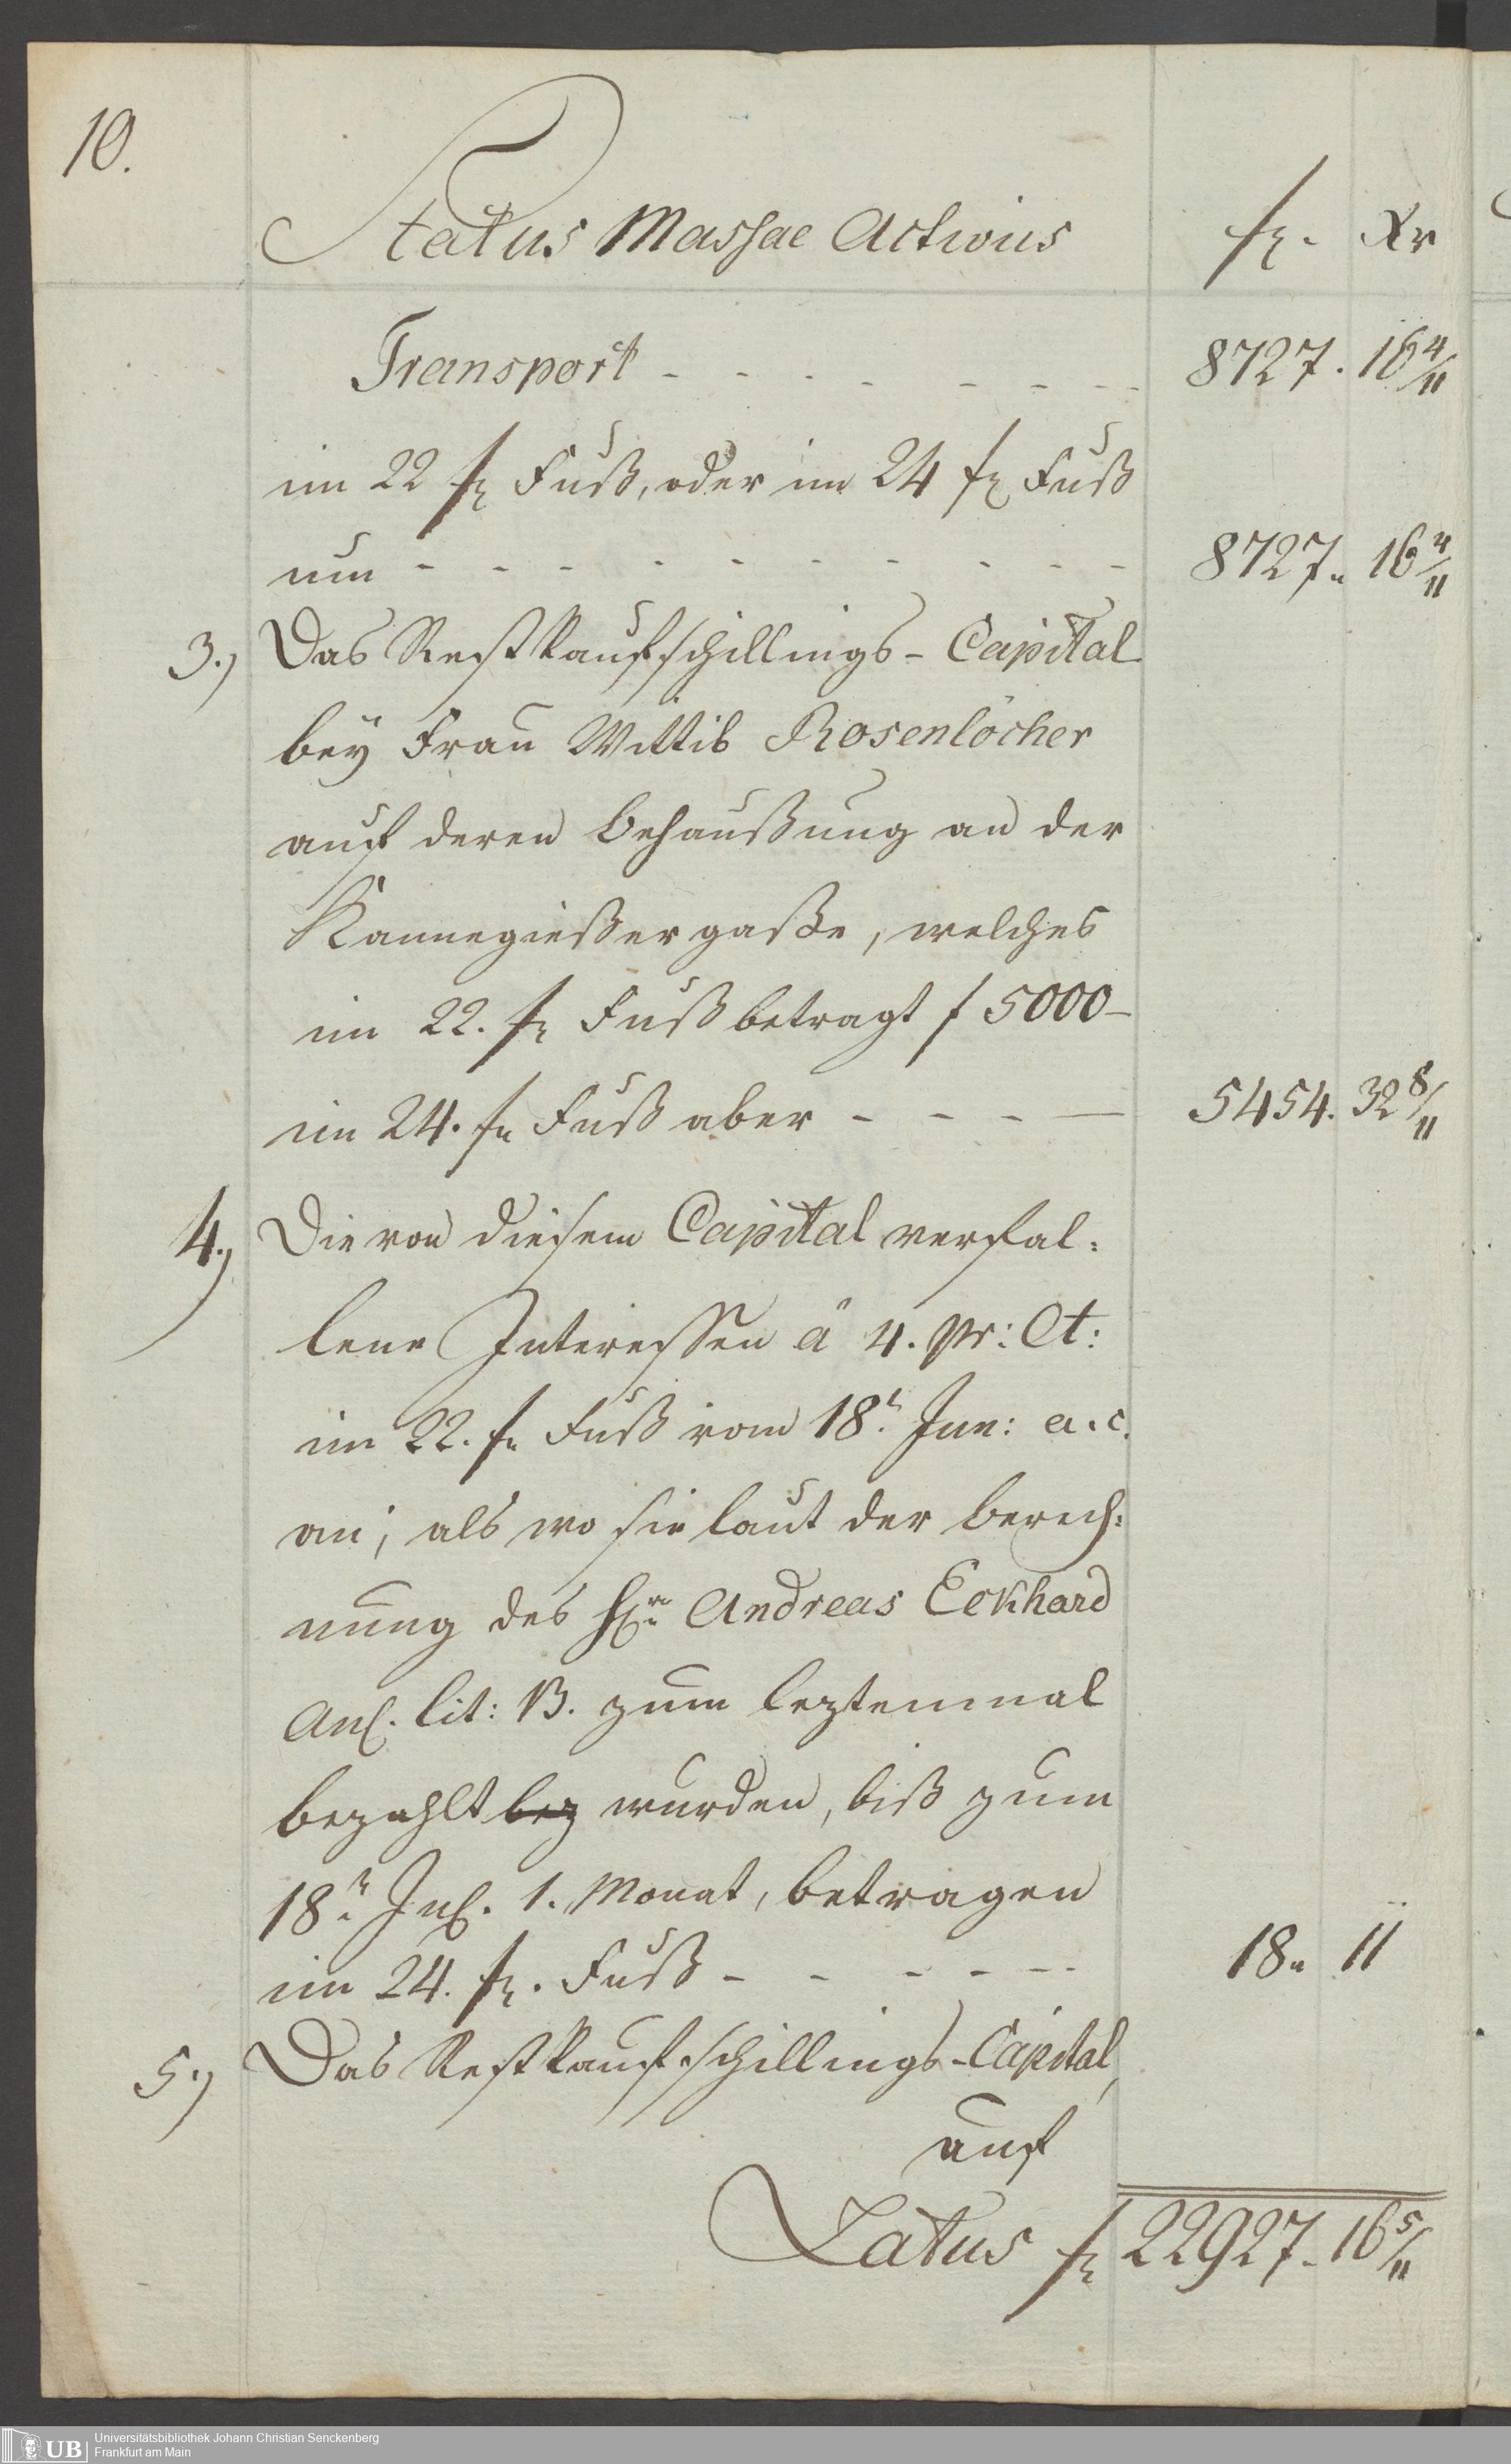 10.
Status Massae Activus f. Xr
Transport - - - - - - - - 8727. 16 4/11
im 22 f Fuß, oder im 24 f Fuß
um - - - - - - - - - - 8727. 16 4/11
3.) Das Restkaufschillings-Capital
bey Frau Wittib Rosenlöcher
auf deren Behaußung an der
Kannegießergaße, welches
im 22. f Fuß betragt f 5000-
im 24. f Fuß aber - - - - 5454. 32 8/11
4.) Die von diesem Capital verfal:
lene Interessen à 4. pr: Ct:
im 22. f Fuß vom 18t. Jun: a. c.
an, als wo sie laut der berech:
nung des Hrn Andreas Eckhard
Anl. lit: B. zum leztenmal
bezahlt bez wurden, biß zum
18n. Jul. 1. Monat, betragen
im 24. f. Fuß - - - - - - 18. 11
5.) Das Restkaufschillings-Capital,
auf
Latus f 22927. 16 5/11
UB Universitätsbibliothek Johann Christian Senckenberg
Frankfurt am Main